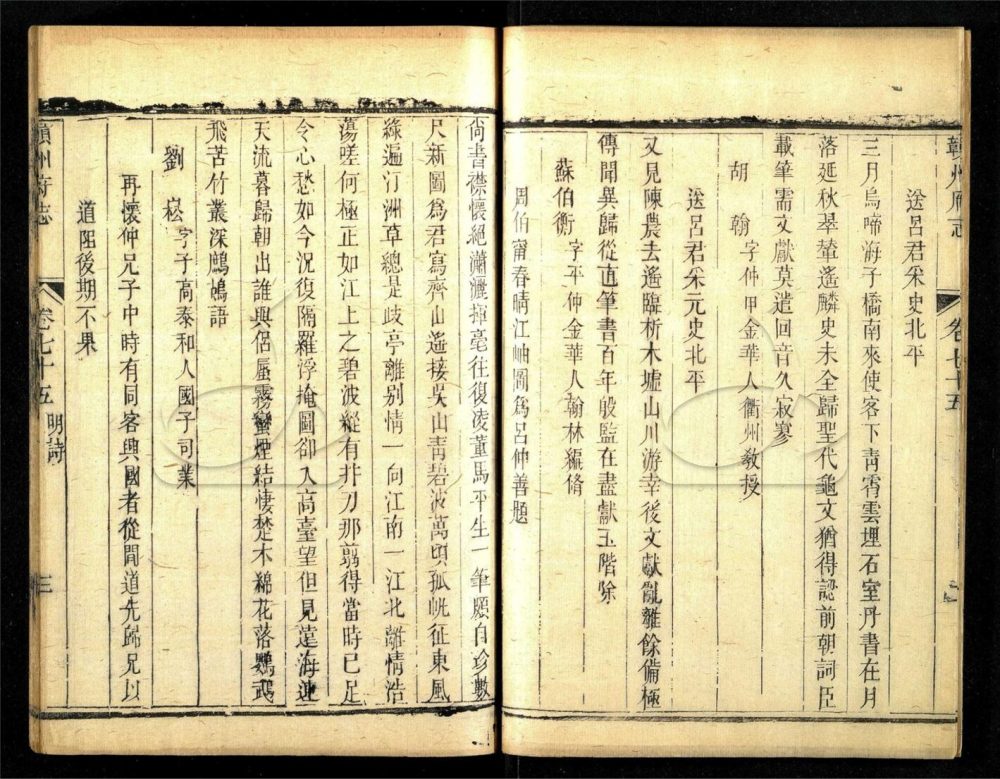 贛州府志
卷七十五
送呂君采史北平
三月烏啼海子橋南來使客下靑霄雲埋石室丹書在月
落延秋翠輦遙麟史未全歸聖代龜文猶得認前朝詞臣
載筆需文獻莫遣回音久寂寥
胡翰 字仲甲金華人衢州敎授
送呂君采元史北平
又見陳農去遙臨析木墟山川游幸後文獻亂離餘備極
傳聞異歸從直筆書百年殷監在盡獻玉階除
蘇伯衡 字平仲金華人翰林編脩
周伯甯春晴江岫圖爲呂仲善題
尙書襟懷絕瀟灑揮毫往復凌董馬平生一筆願自珍數
尺新圖爲君寫齊山遙接吳山靑碧波萬頃孤帆征東風
綠遍汀洲草總是歧亭離别情一向江南一江北離情浩
蕩嗟何極正如江上之碧波縱有幷刀那翦得當時已足
令心愁如今况復隔羅浮掩圖卻入高臺望但見遠海連
天流暮歸朝出誰與侶蜃霧蠻煙結悽楚木綿花落鸚鵡
飛苦竹叢深鷓鴣語
劉崧 字子高泰和人國子司業
再懷仲兄子中時有同客興國者從間道先歸兄以
道阻後期不果
贛州府志
卷七十五 明詩
三